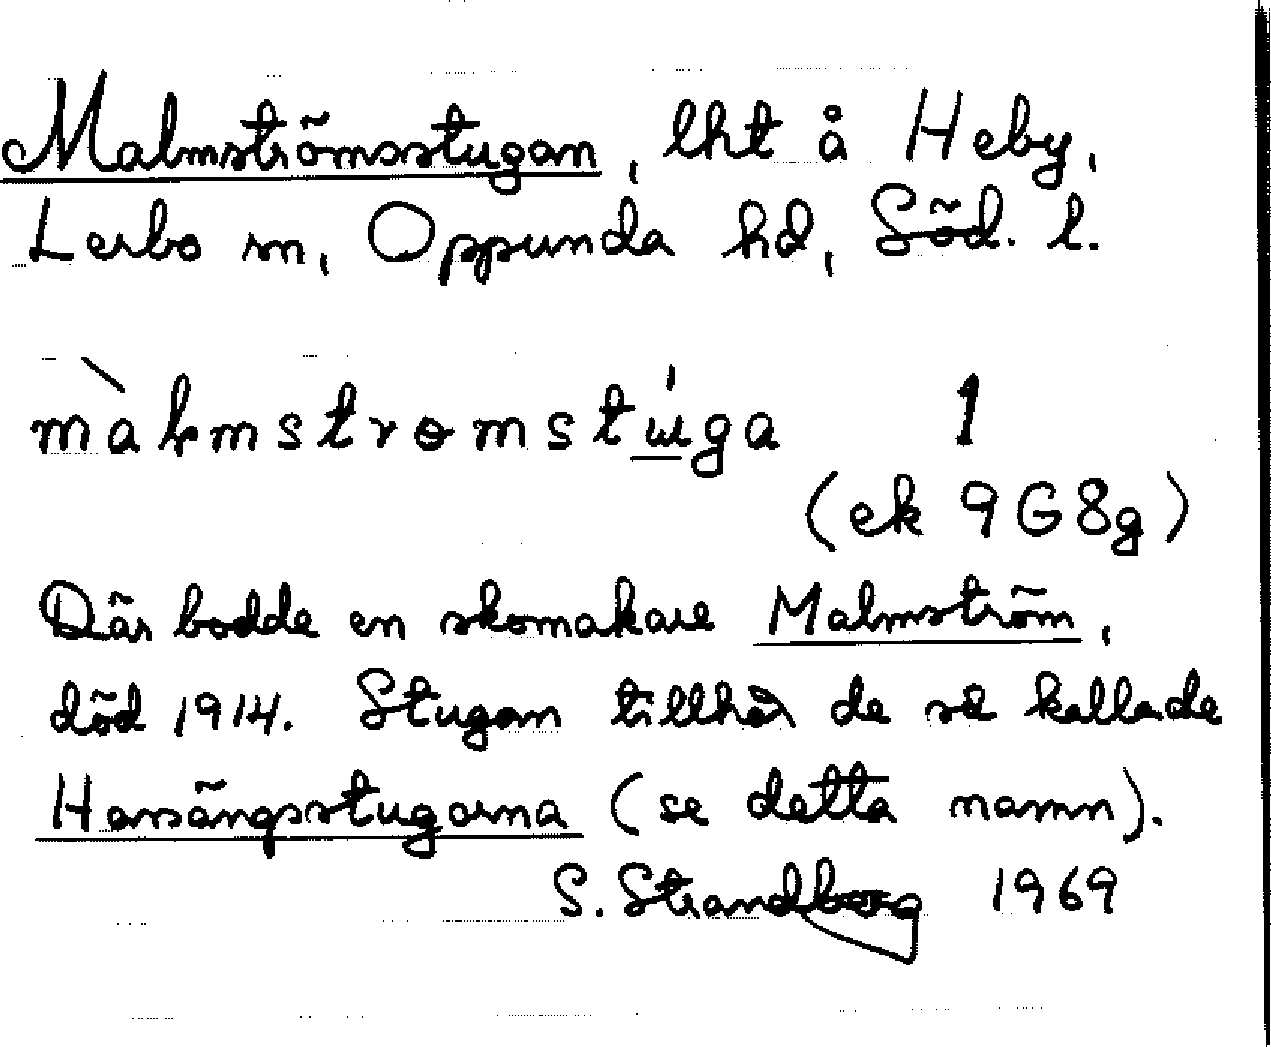 Malmströmsstugan, lht å Heby,
Lerbo sn, Oppunda hd, Söd. l.
màlmstromstɯ́ga 1
(ek 9G8g)
Där bodde en skomakare Malmström,
död 1914. Stugan tillhör de så kallade
Harsängsstugorna (se detta namn).
S. Strandberg 1969